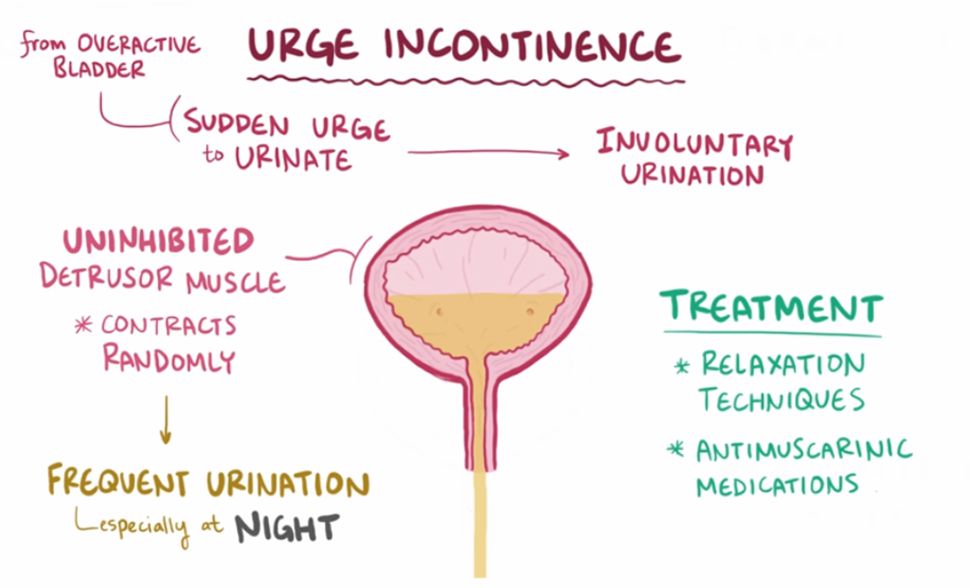 from OVERACTIVE
BLADDER
URGE INCONTINENCE
SUDDEN URGE
to URINATE
INVOLUNTARY
URINATION
UNINHIBITED
DETRUSOR MUSCLE
* CONTRACTS
RANDOMLY
FREQUENT URINATION
especially at NIGHT
TREATMENT
* RELAXATION
TECHNIQUES
* ANTIMUSCARINIC
MEDICATIONS